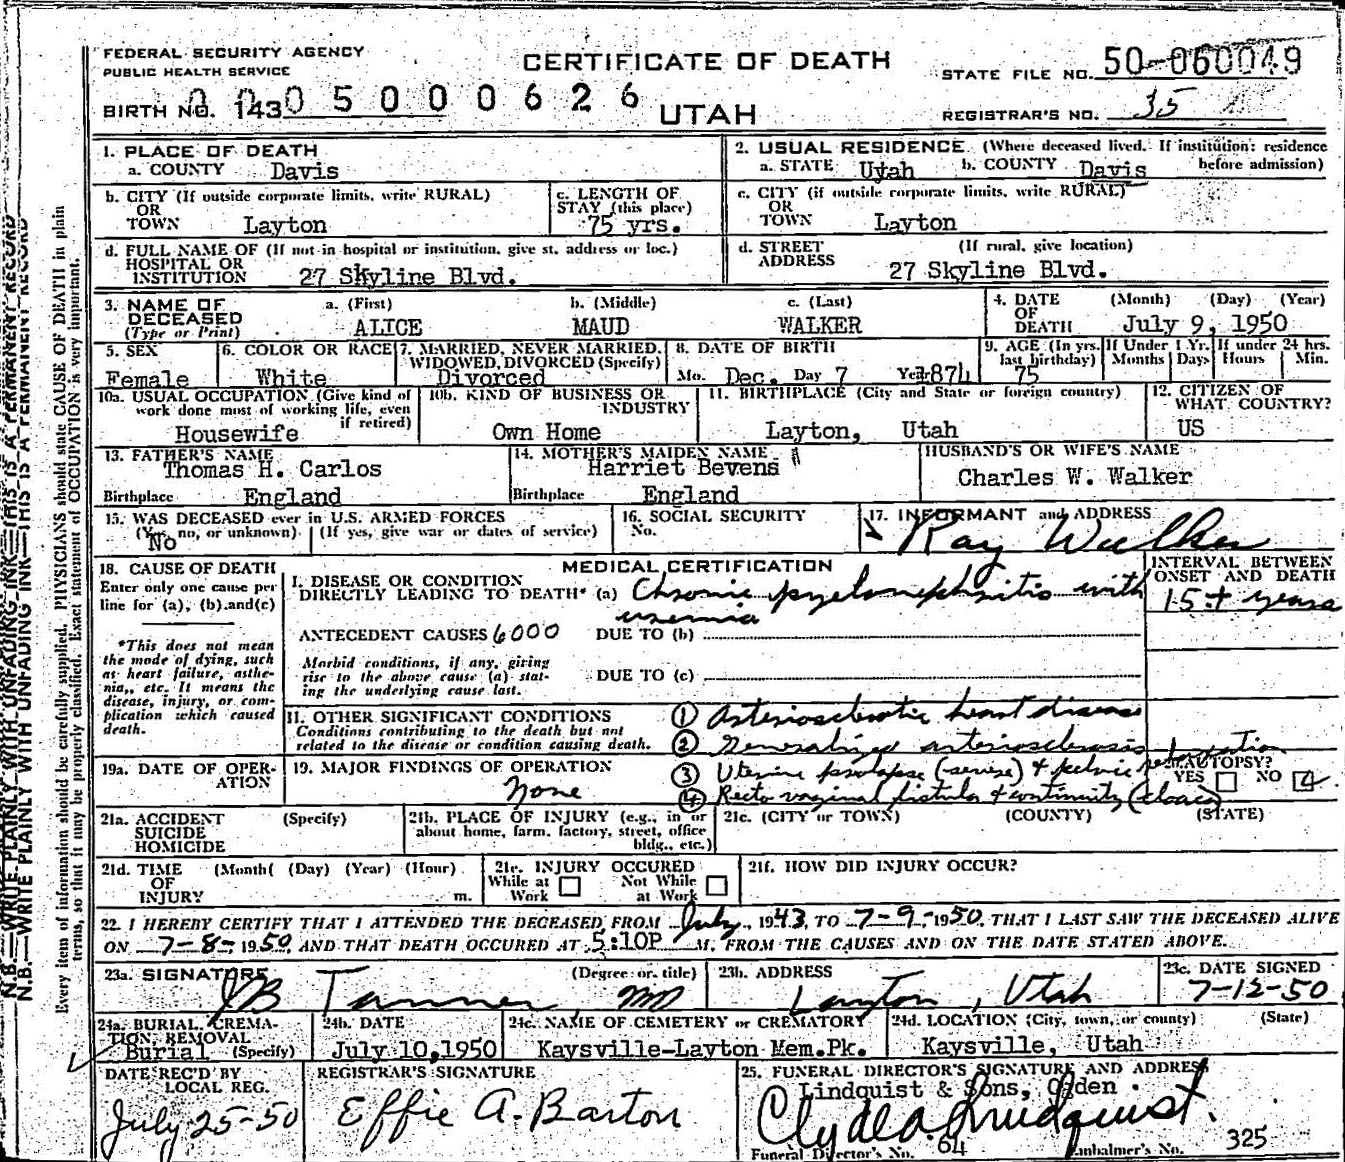 FEDERAL SECURITY AGENCY
PUBLIC HEALTH SERVICE
CERTIFICATE OF DEATH
STATE FILE NO. 50-060049
BIRTH NO. 143 0050000626
UTAH
REGISTRAR'S NO. 35
1. PLACE OF DEATH
a. COUNTY Davis
2. USUAL RESIDENCE (Where deceased lived. If institution: residence before admission)
a. STATE Utah b. COUNTY Davis
b. CITY (If outside corporate limits, write RURAL)
OR
TOWN Layton
c. LENGTH OF
STAY (this place)
75 yrs.
c. CITY (if outside corporate limits, write RURAL)
OR
TOWN Layton
d. FULL NAME OF (If not in hospital or institution, give st. address or loc.)
HOSPITAL OR
INSTITUTION 27 Skyline Blvd.
d. STREET (If rural, give location)
ADDRESS 27 Skyline Blvd.
3. NAME OF DECEASED
(Type or Print)
a. (First) b. (Middle) c. (Last)
ALICE MAUD WALKER
4. DATE OF DEATH
(Month) (Day) (Year)
July 9, 1950
5. SEX
Female
6. COLOR OR RACE
White
7. MARRIED, NEVER MARRIED,
WIDOWED, DIVORCED (Specify)
Divorced
8. DATE OF BIRTH
Mo. Dec. Day 7 Year 1874
9. AGE (In yrs. last birthday)
75
If Under 1 Yr.
Months Days
If under 24 hrs.
Hours Min.
10a. USUAL OCCUPATION (Give kind of
work done most of working life, even
if retired)
Housewife
10b. KIND OF BUSINESS OR
INDUSTRY
Own Home
11. BIRTHPLACE (City and State or foreign country)
Layton, Utah
12. CITIZEN OF
WHAT COUNTRY?
US
13. FATHER'S NAME
Thomas H. Carlos
Birthplace England
14. MOTHER'S MAIDEN NAME
Harriet Bevens
Birthplace England
HUSBAND'S OR WIFE'S NAME
Charles W. Walker
15. WAS DECEASED ever in U.S. ARMED FORCES
(Yes, no, or unknown) (If yes, give war or dates of service)
No
16. SOCIAL SECURITY
No.
17. INFORMANT and ADDRESS
Ray Walker
18. CAUSE OF DEATH
Enter only one cause per
line for (a), (b).and(c)
*This does not mean
the mode of dying, such
as heart failure, asthe-
nia,, etc. It means the
disease, injury, or com-
plication which caused
death.
MEDICAL CERTIFICATION
I. DISEASE OR CONDITION
DIRECTLY LEADING TO DEATH* (a) Chronic pyelonephritis with
uremia
INTERVAL BETWEEN
ONSET AND DEATH
15+ years
ANTECEDENT CAUSES 6000 DUE TO (b)
Morbid conditions, if any, giving
rise to the above cause (a) stat-
ing the underlying cause last.
DUE TO (c)
II. OTHER SIGNIFICANT CONDITIONS
Conditions contributing to the death but not
related to the disease or condition causing death.
① Arteriosclerotic heart disease
② Generalized arteriosclerosis
③ Uterine prolapse (severe) + pelvic relaxation
④ Recto vaginal fistula + continuity (cloaca)
19a. DATE OF OPER-
ATION
19. MAJOR FINDINGS OF OPERATION
None
AUTOPSY?
YES NO
21a. ACCIDENT (Specify)
SUICIDE
HOMICIDE
21b. PLACE OF INJURY (e.g., in or
about home, farm, factory, street, office
bldg., etc.)
21c. (CITY or TOWN) (COUNTY) (STATE)
21d. TIME (Month( (Day) (Year) (Hour)
OF
INJURY m.
21e. INJURY OCCURED
While at Work Not While at Work
21f. HOW DID INJURY OCCUR?
22. I HEREBY CERTIFY THAT I ATTENDED THE DECEASED FROM July, 1943, TO 7-9-1950, THAT I LAST SAW THE DECEASED ALIVE
ON 7-8-1950, AND THAT DEATH OCCURED AT 5:10P M, FROM THE CAUSES AND ON THE DATE STATED ABOVE.
23a. SIGNATURE (Degree or title)
JB Tanner MD
23b. ADDRESS
Layton, Utah
23c. DATE SIGNED
7-12-50
24a. BURIAL, CREMA-
TION, REMOVAL
Burial (Specify)
24b. DATE
July 10,1950
24c. NAME OF CEMETERY or CREMATORY
Kaysville-Layton Mem.Pk.
24d. LOCATION (City, town, or county) (State)
Kaysville, Utah
DATE REC'D BY
LOCAL REG.
July 25-50
REGISTRAR'S SIGNATURE
Effie A. Barton
25. FUNERAL DIRECTOR'S SIGNATURE AND ADDRESS
Lindquist & Sons, Ogden
Clyde A. Lindquist.
Funeral Director's No. 64 Embalmer's No. 325
N.B.—WRITE PLAINLY WITH UNFADING INK—THIS IS A PERMANENT RECORD
N.B.—WRITE PLAINLY WITH UNFADING INK—THIS IS A PERMANENT RECORD
Every item of information should be carefully supplied. PHYSICIANS should state CAUSE OF DEATH in plain
terms, so that it may be properly classified. Exact statement of OCCUPATION is very important.